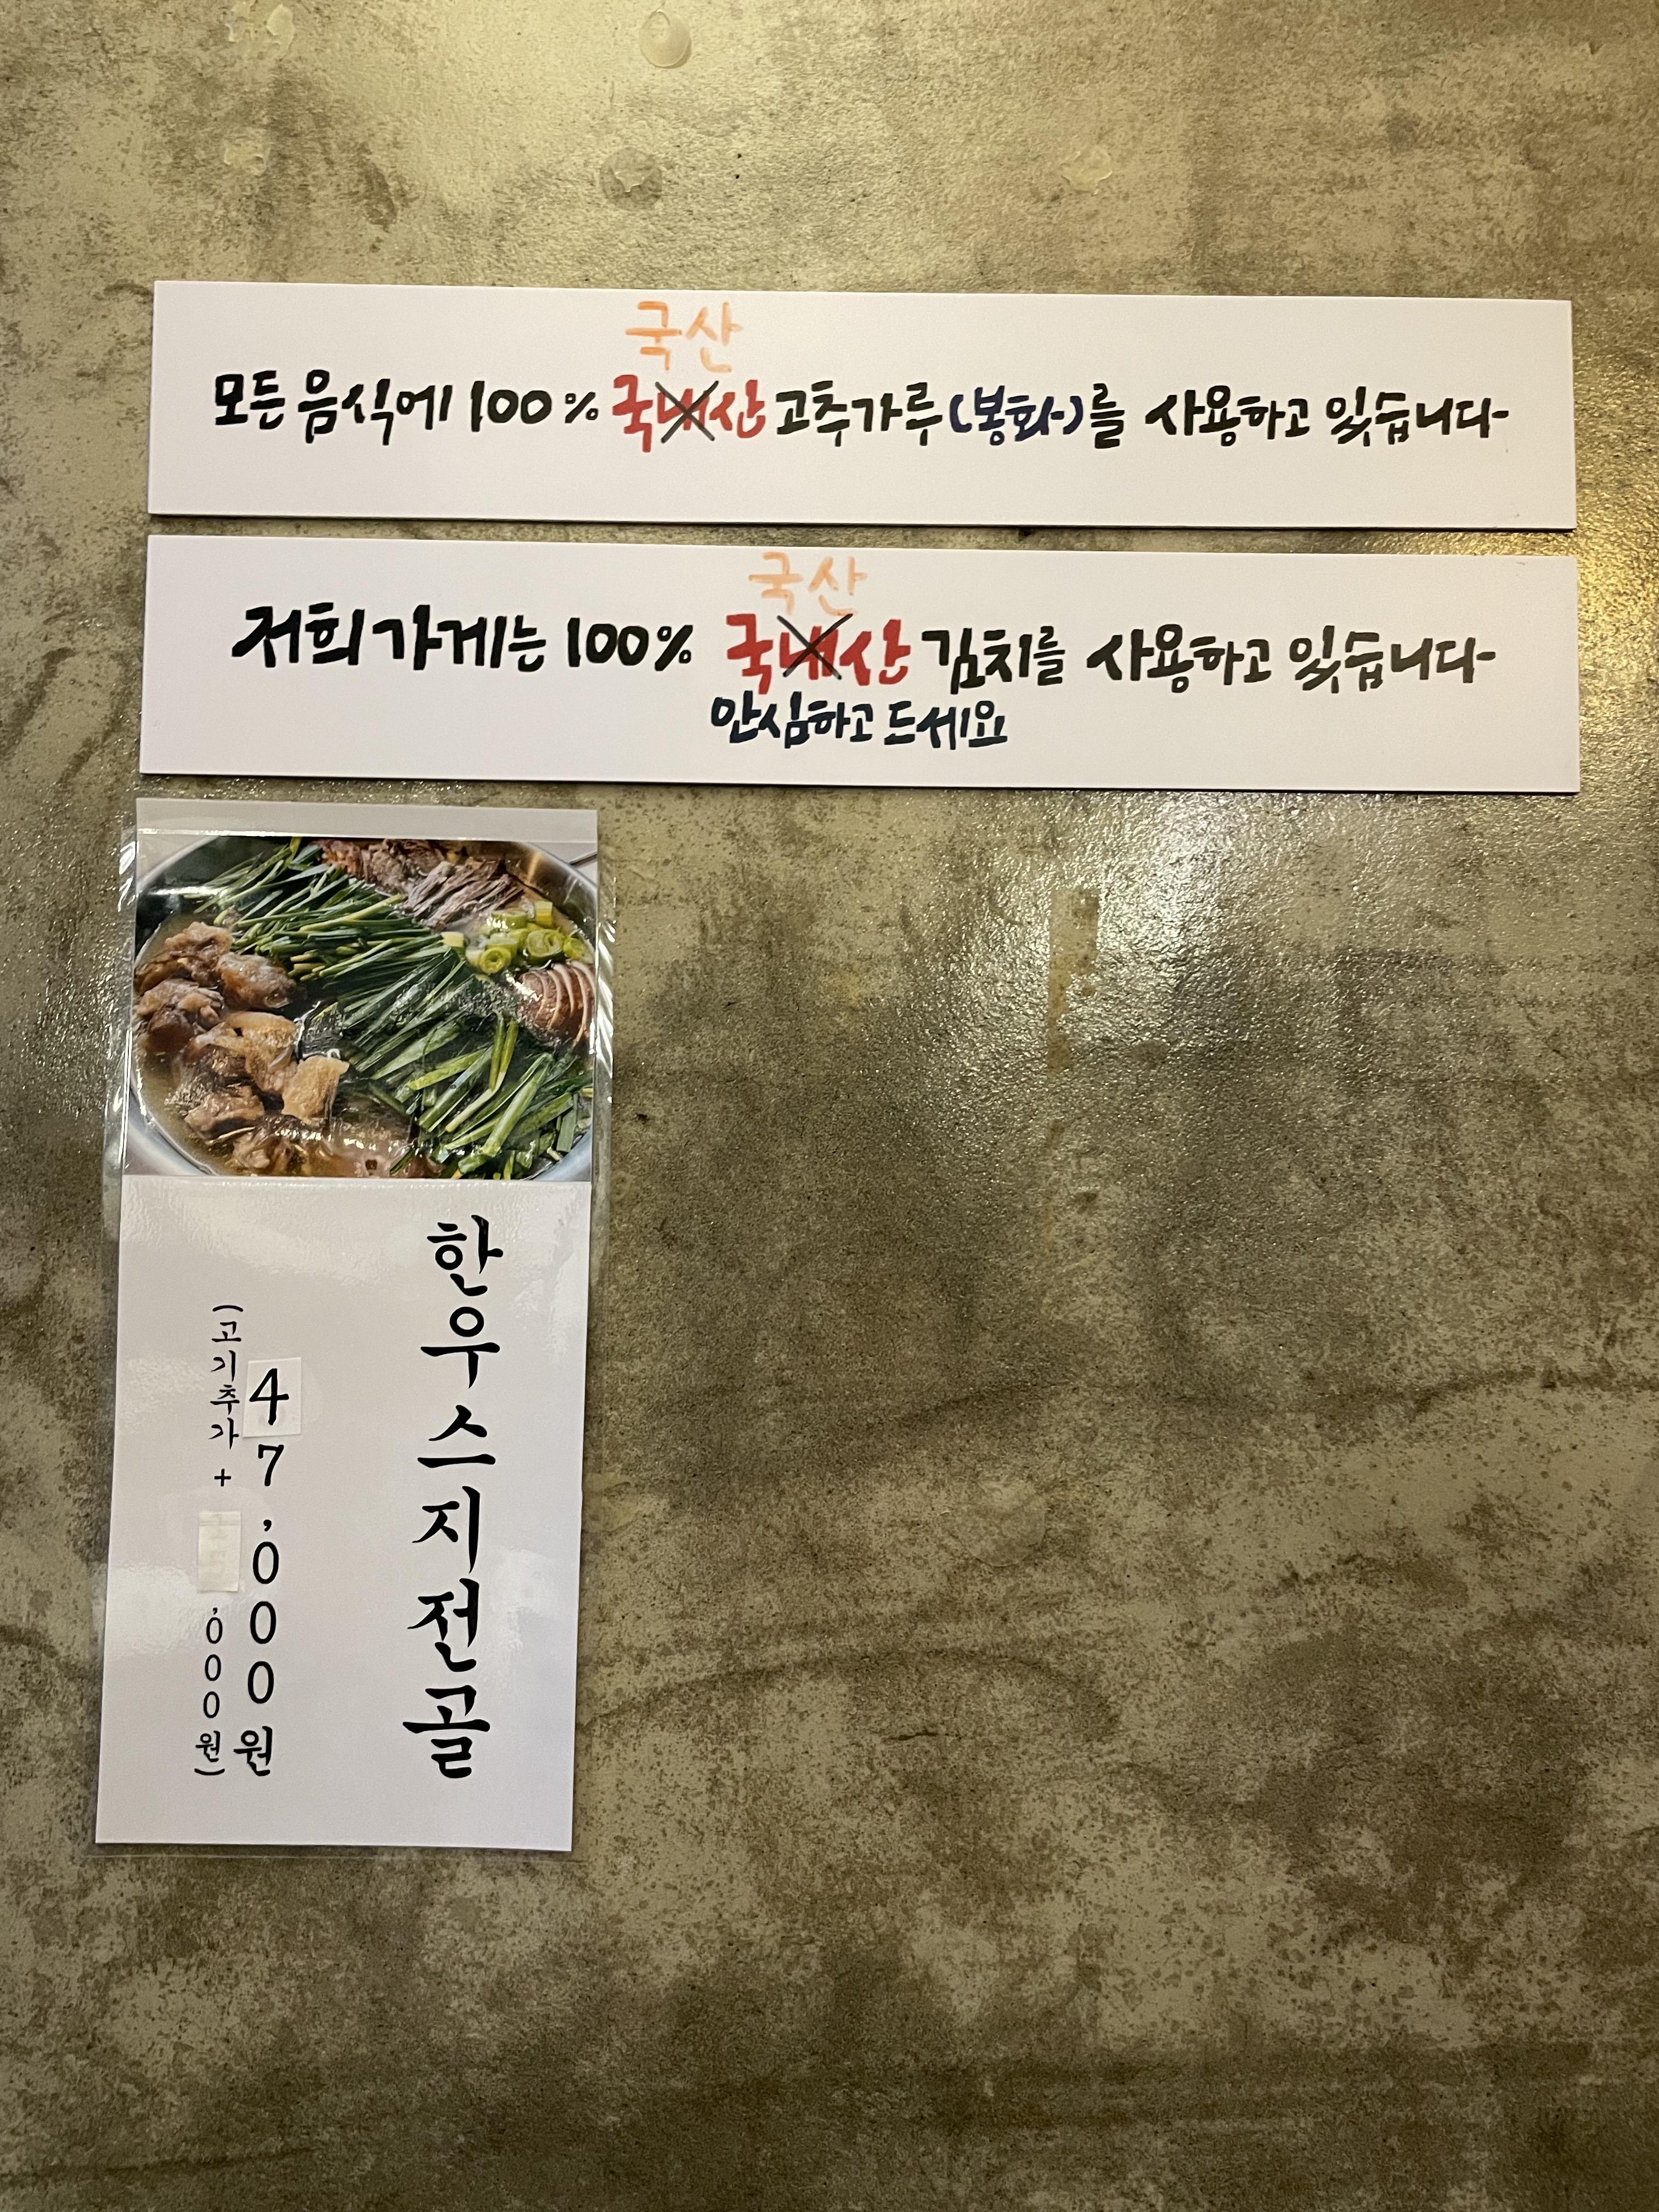 국산
모든 음식에 100% 국내산 고추가루(봉화)를 사용하고 있습니다
국산
저희 가게는 100% 국내산 김치를 사용하고 있습니다
안심하고 드세요
한우스지전골
47,000원
(고기추가+ ,000원)